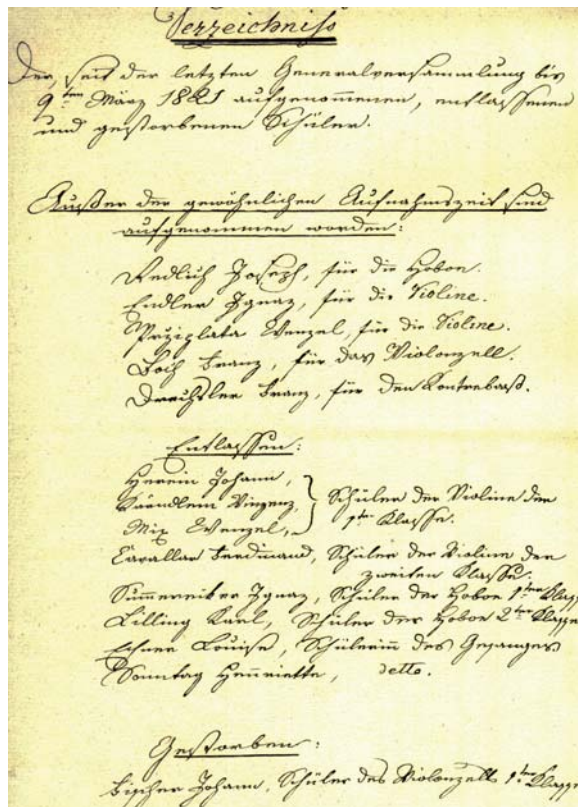 Verzeichniß
Der, seit der letzten Generalversammlung bis
9ten März 1821 aufgenommenen, entlassenen
und gestorbenen Schüler.
Außer der gewöhnlichen Aufnahmszeit sind
aufgenommen worden:
Redlich Joseph, für die Hoboe.
Endler Ignaz, für die Violine.
Wenzel, für die Violine.
Franz, für das Violonzell.
Drechsler Franz, für den Kontrebaß.
Entlassen:
Johann,
Vinzenz, Schüler der Violine der
Mix Wenzel, 1ten Klasse.
Cavallar Ferdinand, Schüler der Violine der
zweiten Klasse.
Ignaz, Schüler der Hoboe 1ten Klasse
Lilling Karl, Schüler der Hoboe 2ten Klasse
Louise, Schülerin des Gesanges
Sonntag Henriette, detto.
Gestorben:
Fischer Johann, Schüler des Violonzells 1ten Klasse